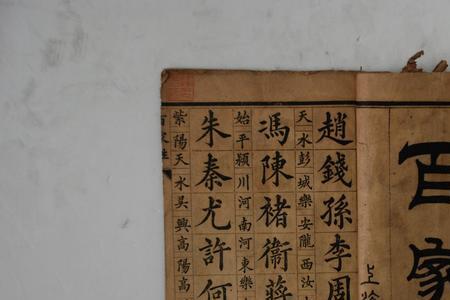 百家
趙錢孫李周
天水彭城樂安隴西汝
馮陳褚衞蔣
始平潁川河南河東樂
朱秦尤許何
紫陽天水吳興高陽
百家姓